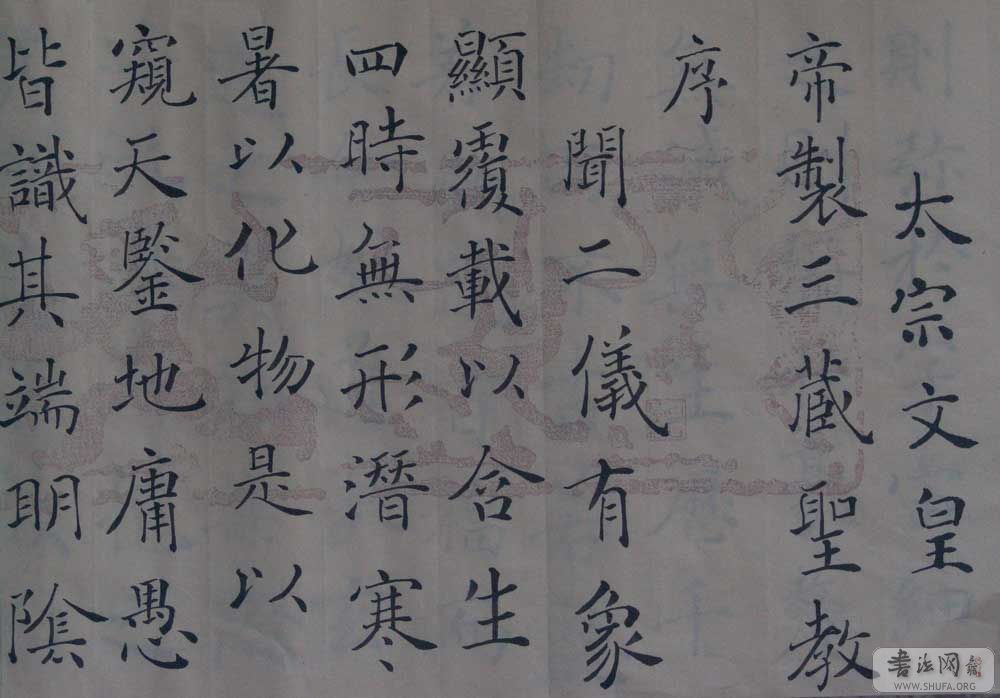 太宗文皇
帝製三蔵聖教
序
聞二儀有象
顯覆載以含生
四時無形潛寒
暑以化物是以
窺天鑒地庸愚
皆識其端明陰
書法网
WWW.SHUFA.ORG